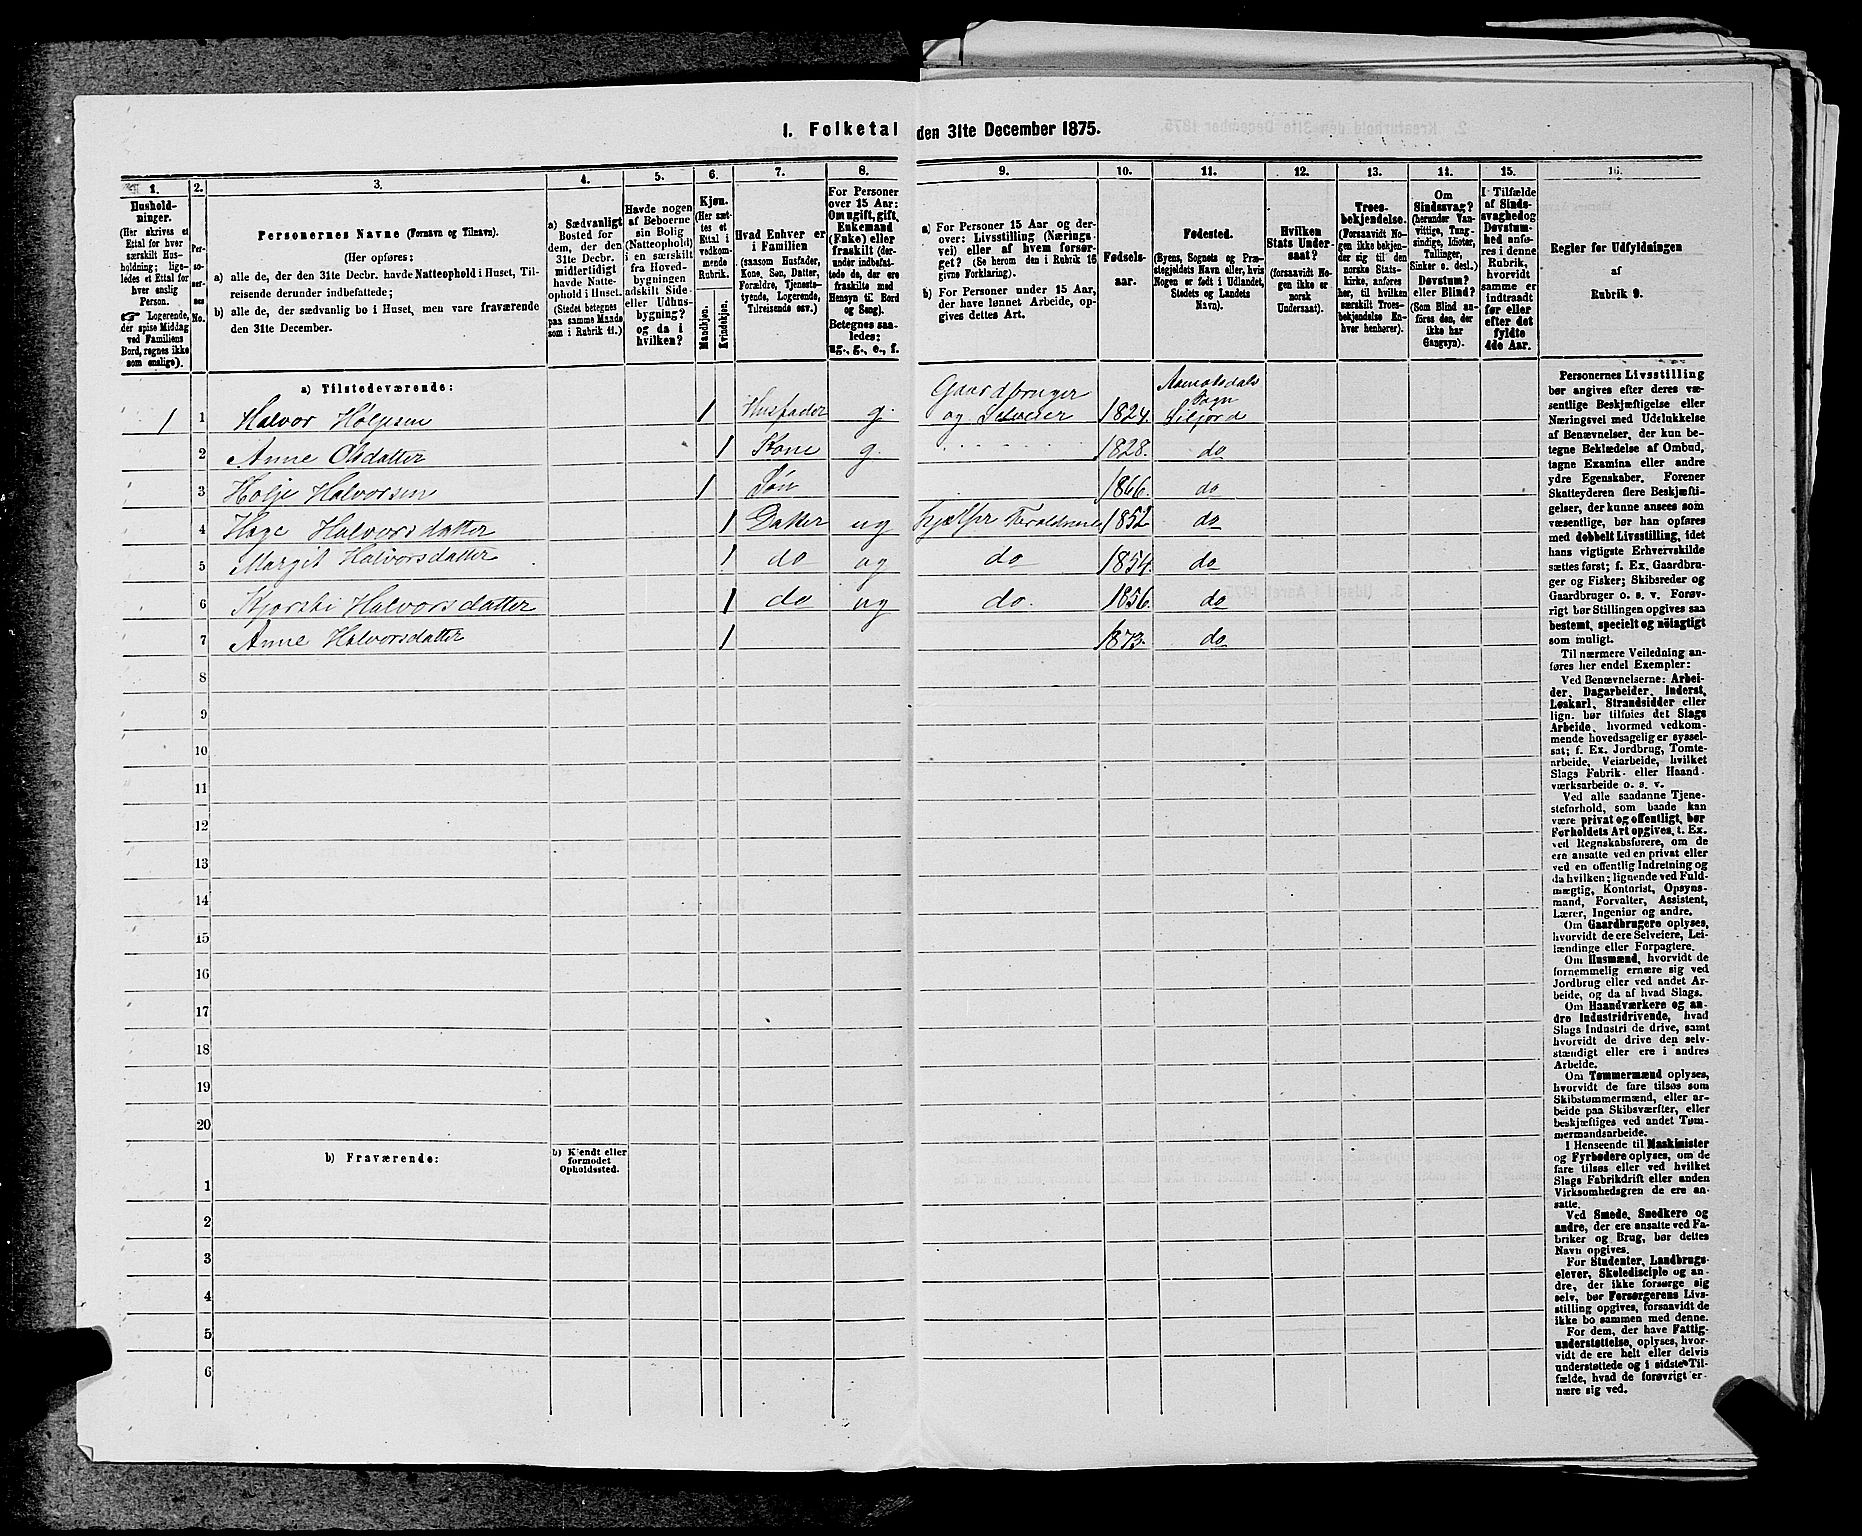 1. Folketal den 31te December 1875.
1. 2. 3. 4. 5. 6. 7. 8. 9. 10. 11. 12. 13. 14. 15. 16.
Husholdninger.
(Her skrives et
Ettal for hver
særskilt Husholdning;
ligeledes et Ettal for
hver enslig
Person.
☞ Logerende,
der spise Middag
ved Familiens
Bord, regnes ikke
som enslige).
Personernes No.
Personernes Navne (Fornavn og Tilnavn).
(Her opføres:
a) alle de, der den 31te Decbr. havde Natteophold i Huset, Tilreisende derunder indbefattede;
b) alle de, der sædvanlig bo i Huset, men vare fraværende
den 31te December.
a) Sædvanligt
Bosted for
dem, der den
31te Decbr.
midlertidigt
havde Natteophold i Huset.
(Stedet betegnes
paa samme Maade
som i Rubrik 11.)
Havde nogen
af Beboerne
sin Bolig
(Natteophold)
i en særskilt
fra Hovedbygningen
adskilt Side-
eller Udhusbygning?
og da i
hvilken?
Kjøn.
(Her sættes et
Ettal i
vedkommende
Rubrik.
Mandkjøn.
Kvindekjøn.
Hvad Enhver er
i Familien
(saasom Husfader,
Kone, Søn, Datter,
Forældre, Tjenestetyende, Logerende,
Tilreisende osv.)
For Personer
over 15 Aar:
Om ugift, gift,
Enkemand
(Enke) eller
fraskilt (derunder indbefattede de, der ere
fraskilte med
Hensyn til Bord
og Seng).
Betegnes saaledes:
ug., g., e., f.
a) For Personer 15 Aar og derover: Livsstilling (Næringsvei) eller af hvem forsørget? (Se herom den i Rubrik 16
givne Forklaring).
b) For Personer under 15 Aar,
der have lønnet Arbeide, opgives dettes Art.
Fødselsaar.
Fødested.
(Byens, Sognets og Præstegjeldets Navn eller, hvis
Nogen er født i Udlandet,
Stedets og Landets
Navn).
Hvilken
Stats Undersaat?
(forsaavidt Nogen ikke er
norsk
Undersaat).
Troesbekjendelse.
(Forsaavidt Nogen ikke bekjender sig til den
norske Statskirke, anføres
her, til hvilken
særskilt Troesbekjendelse Enhver henhører).
Om
Sindssvag?
(herunder Vanvittige, Tungsindige, Idioter,
Tullinger,
Sinker o. desl.)
Døvstum?
eller Blind?
(Som Blind anføres den, der
ikke har
Gangsyn).
I Tilfælde
af Sindssvaghed og
Døvstumhed anføres i denne
Rubrik,
hvorvidt
samme er
indtraadt
før eller
efter det
fyldte
4de Aar.
Regler for Udfyldningen
af
Rubrik 9.
a) Tilstedeværende:
1 1 Halvor Holjesen 1 Husfader g. Gaardbruger og Selveier 1824. Aamotsdals Sogn Siljord
2 Anne Olsdatter 1 Kone g. 1828. do
3 Holje Halvorsen 1 Søn 1866. do
4 Hage Halvorsdatter 1 Datter ug hjælper Foraldrene 1852 do
5 Margit Halvorsdatter 1 do ug do 1854. do
6 Kjorsti Halvorsdatter 1 do ug do. 1856. do
7 Anne Halvorsdatter 1 1873. do
8
9
10
11
12
13
14
15
16
17
18
19
20
b) Fraværende:
b) Kjendt eller
formodet
Opholdssted.
1
2
3
4
5
6
Personernes Livsstilling
bør angives efter deres væsentlige Beskjæftigelse eller
Næringsvei med Udelukkelse
af Benævnelser, der kun betegne Beklædelse af Ombud,
tagne Examina eller andre
ydre Egenskaber. Forener
Skatteyderen flere Beskjæftigelser, der kunne ansees som
væsentlige, bør han opføres
med dobbelt Livsstilling, idet
hans vigtigste Erhvervskilde
sættes først; f. Ex. Gaardbruger og Fisker; Skibsreder og
Gaardbruger o. s. v. Forøvrigt bør Stillingen opgives saa
bestemt, specielt og nøiagtigt
som muligt.
Til nærmere Veiledning anføres her endel Exempler:
Ved Benævnelserne: Arbeider, Dagarbeider, Inderst,
Løskarl, Strandsidder eller
lign. bør tilføies det Slags
Arbeide, hvormed vedkommende hovedsagelig er sysselsat; f. Ex. Jordbrug, Tomtearbeide, Veiarbeide, hvilket
Slags Fabrik- eller Haandværksarbeide o. s. v.
Ved alle saadanne Tjenesteforhold, som baade kan
være privat og offentligt, bør
Forholdets Art opgives, t. Ex.
ved Regnskabsførere, om de
ere ansatte ved en privat eller
ved en offentlig Indretning og
da hvilken; lignende ved Fuldmægtig, Kontorist, Opsynsmand, Forvalter, Assistent,
Lærer, Ingeniør og andre.
Om Gaardbrugere oplyses,
hvorvidt de ere Selveiere, Leilændinge eller Forpagtere.
Om Husmænd, hvorvidt de
fornemmelig ernære sig ved
Jordbrug eller ved andet Arbeide, og da af hvad Slags.
Om Haandværkere og andre Industridrivende, hvad
Slags Industri de drive, samt
hvorvidt de drive den selvstændigt eller ere i andres
Arbeide.
Om Tømmermænd oplyses,
hvorvidt de fare tilsøs som
Skibstømmermænd, eller arbeide paa Skibsværfter, eller
beskjæftiges ved andet Tømmermandsarbeide.
I Henseende til Maskinister
og Fyrbødere oplyses, om de
fare tilsøs eller ved hvilket
Slags Fabrikdrift eller anden
Virksomhedsgren de ere ansatte.
Ved Smede, Snedkere og
andre, der ere ansatte ved Fabriker og Brug, bør dettes
Navn opgives.
For Studenter, Landbrugselever, Skoledisciple og andre, der ikke forsørge sig
selv, bør Forsørgerens Livsstilling opgives, forsaavidt de
ikke bo sammen med denne.
For dem, der have Fattigunderstøttelse, oplyses, hvorvidt de ere helt eller delvis
understøttede og i sidste Tilfælde, hvad de forøvrigt ernære sig ved.